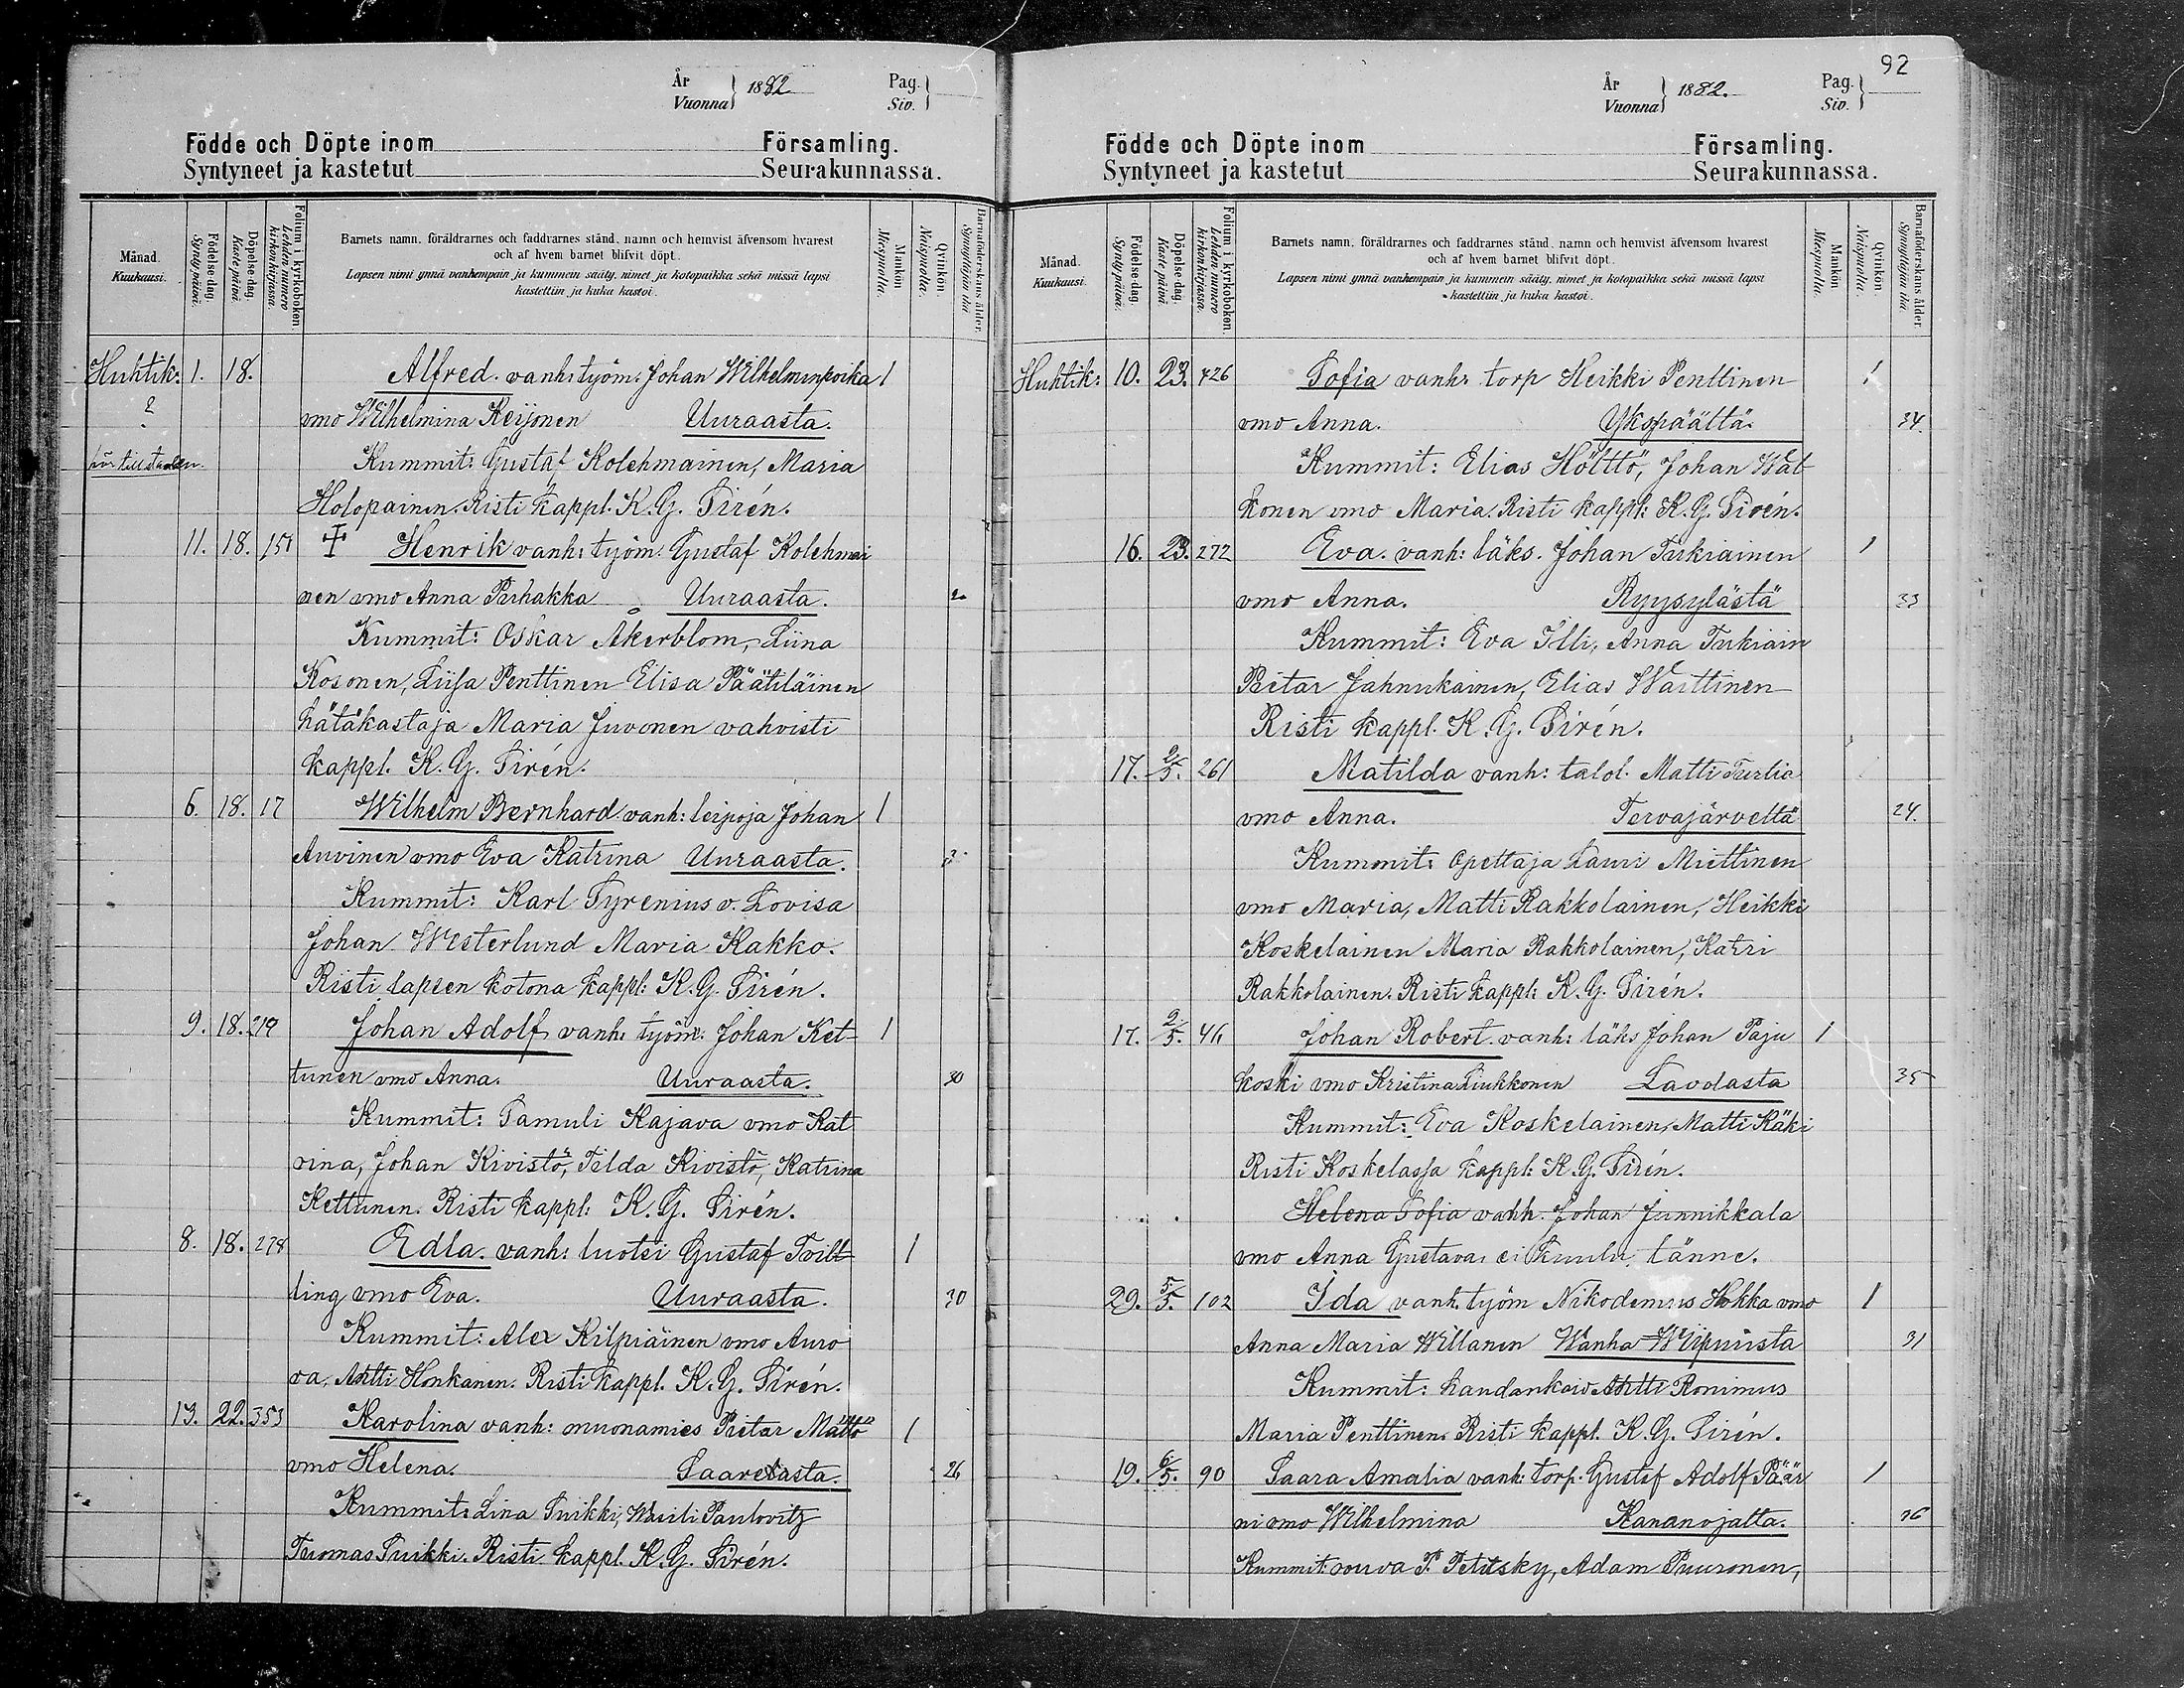 År
Vuonna } 1882
Pag.
Siv. }
Födde och Döpte inom Församling.
Syntyneet ja kastetut Seurakunnassa.
Månad.
Kuukausi.
Födelse-dag.
Syntypäivä.
Döpelse-dag.
Kaste päivä.
Folium i kyrkoboken.
Lehden numero kirkonkirjassa.
Barnets namn, föräldrarnes och faddrarnes stånd, namn och hemvist äfvensom hvarest
och af hvem barnet blifvit döpt.
Lapsen nimi ynnä vanhempain ja kummein sääty, nimet ja kotopaikka sekä missä lapsi
kastettiin ja kuka kastoi.
Mankön.
Miespuolia.
Qvinkön.
Naispuolia.
Barnaföderskans ålder.
Synnyttäjän ikä.
Huhtik: 1. 18. Alfred. vanh: työm. Johan Wilhelminpoika 1
2 vmo Wilhelmina Keijonen Uuraasta.
Kummit: Gustaf Kolehmainen, Maria
Holopainen. Risti kappl. K. G. Sirén.
11. 18. 151 Henrik vanh: työm. Gustaf Kolehmai
nen vmo Anna Parhakka Uuraasta.
Kummit: Oskar Åkerblom, Liina
Kosonen, Liisa Penttinen Elisa Päätiläinen
hätäkastaja Maria Juvonen vahvisti
kappl. K. G. Sirén.
6. 18. 17 Wilhelm Bernhard. vanh: leipoja Johan 1
Auvinen vmo Eva Katrina Uuraasta.
Kummit: Karl Tyrenius v. Lovisa
Johan Westerlund Maria Kakko.
Risti lapsen kotona kappl: K. G. Sirén.
9. 18. 219 Johan Adolf vanh: työm: Johan Ket- 1
tunen vmo Anna. Uuraasta. 30
Kummit: Samuli Kajava vmo Kat
rina, Johan Kivistö, Tilda Kivistö, Katrina
Kettunen. Risti kappl: K. G. Sirén.
8. 18. 278 Edla. vanh: luotsi Gustaf Tvilt 1
ting vmo Eva. Uuraasta. 30
Kummit: Alex Kilpiäinen vmo Auro
ra, Antti Honkanen. Risti kappl. K. G. Sirén.
13. 22. 353 Karolina vanh: muonamies Pietar Mättö 1
vmo Helena. Saarelasta. 26
Kummit: Lina Suikki, Wasili Paulovitz
Tuomas Suikki. Risti kappl. K. G. Sirén.
92
År
Vuonna } 1882.
Pag.
Siv. }
Födde och Döpte inom Församling.
Syntyneet ja kastetut Seurakunnassa.
Månad.
Kuukausi.
Födelse-dag.
Syntypäivä.
Döpelse-dag.
Kaste päivä.
Folium i kyrkoboken.
Lehden numero kirkonkirjassa.
Barnets namn, föräldrarnes och faddrarnes stånd, namn och hemvist äfvensom hvarest
och af hvem barnet blifvit döpt.
Lapsen nimi ynnä vanhempain ja kummein sääty, nimet ja kotopaikka sekä missä lapsi
kastettiin ja kuka kastoi.
Mankön
Miespuolia.
Qvinkön.
Naispuolia.
Barnaföderskans ålder.
Synnyttäjän ikä
Huhtik: 10. 23. 426 Sofia vanh. torp Heikki Penttinen 1
vmo Anna. Ykspäältä. 34.
Kummit: Elias Hölttö, Johan Wal
konen vmo Maria. Risti kappl: K. G. Sirén.
16. 23. 272 Eva. vanh: läks. Johan Turkiainen 1
vmo Anna. Ryysylästä 33
Kummit: Eva Illi, Anna Turkiain
Pietar Jahnukainen, Elias Waittinen
Risti kappl. K. G. Sirén.
17. 2/5. 261 Matilda vanh: talol. Matti Turtia
vmo Anna. Tervajärveltä 24.
Kummit: Opettaja Lauri Miettinen
vmo Maria, Matti Rakkolainen, Heikki
Koskelainen Maria Rakkolainen, Katri
Rakkolainen. Risti kappl: K. G. Sirén.
17. 2/5. 46 Johan Robert. vanh: läks Johan Paju 1
koski vmo Kristina Liukkonen Lavolasta 35
Kummit: Eva Koskelainen, Matti Käki
Risti Koskelassa kappl: K. G. Sirén.
Helena Sofia vanh. Johan Junnikkala
vmo Anna Gustava. ei kuulu tänne.
29. 5/5. 102 Ida vanh. työm Nikodemus Hokka vmo 1
Anna Maria Willanen Wanha Wiipurista 31
Kummit: Antti Ronimus
Maria Penttinen. Risti kappl. K. G. Sirén.
19. 6/5. 90 Saara Amalia vanh: torp. Gustaf Adolf Päär 1
ni vmo Wilhelmina Kananojalta.
Kummit: rouva P. Petitsky, Adam Puuronen,